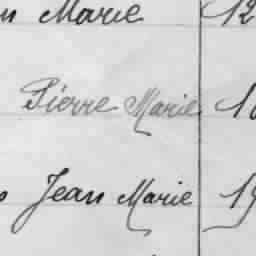 Marie 12
Pierre Marie
Jean Marie 19